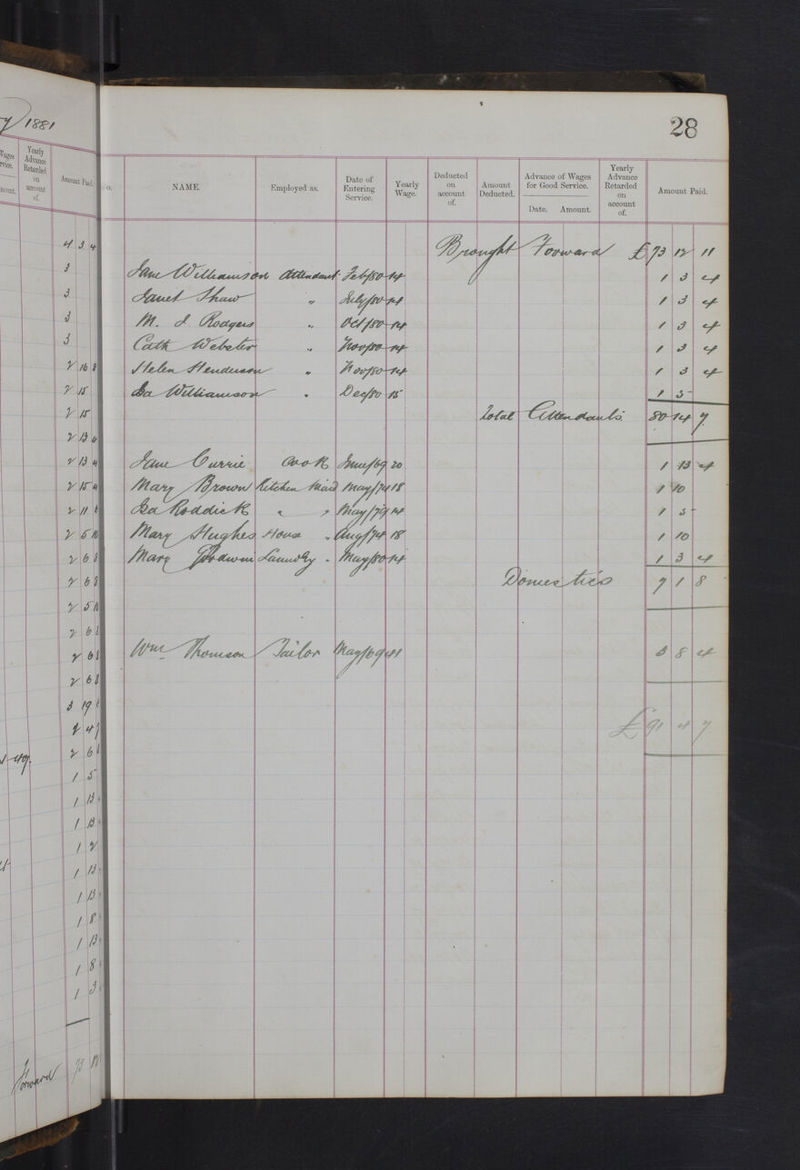 y 1881
Wages
rvice.
mount.
Yearly
Advance
Retarded
on
account
of.
Amount Paid.
4 3 4
3
3
3
3
2 16 8
2 15
2 15
2 13 4
2 13 4
2 15
2 11 8
2 5 10
2 6 8
2 6 8
2 5 10
2 6 8
2 6 8
2 6 8
3 19
2 4 7
2 6 8
1 5
1 13
1 13
1 2
1 13
1 13
1 8
1 13
1 8
1 3
Forward 73 12
28
o. NAME. Employed as. Date of Entering Service. Yearly Wage. Deducted on account of. Amount Deducted. Advance of Wages for Good Service. Date. Amount. Yearly Advance Retarded on account of. Amount Paid.
Brought Forward £73 12 11
Jane Williamson Attendant Feb/80 14 1 3 4
Janet Shaw " July/80 14 1 3 4
M. J Rodgers " Oct/80 14 1 3 4
Cath Webster " Nov/80 14 1 3 4
Helen Henderson " Nov/80 14 1 3 4
Isa Williamson " Dec/80 15 1 5
Total Attendants 80 14 7
Jane Currie Cook June/69 20 1 13 4
Mary Brown Kitchen Maid May/74 18 1 10
Isa Roddick " " May/79 14 1 5
Mary Hughes House " Aug/74 18 1 10
Mary Goodwin Laundry " May/80 14 1 3 4
Domestics 7 1 8
Wm Thomson Tailor May/69 41 3 8 4
£91 4 7